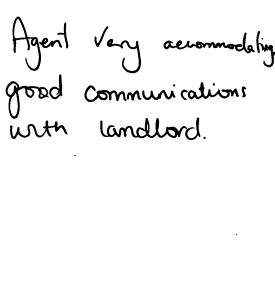 Agent very accommodating,
good communications
with landlord.